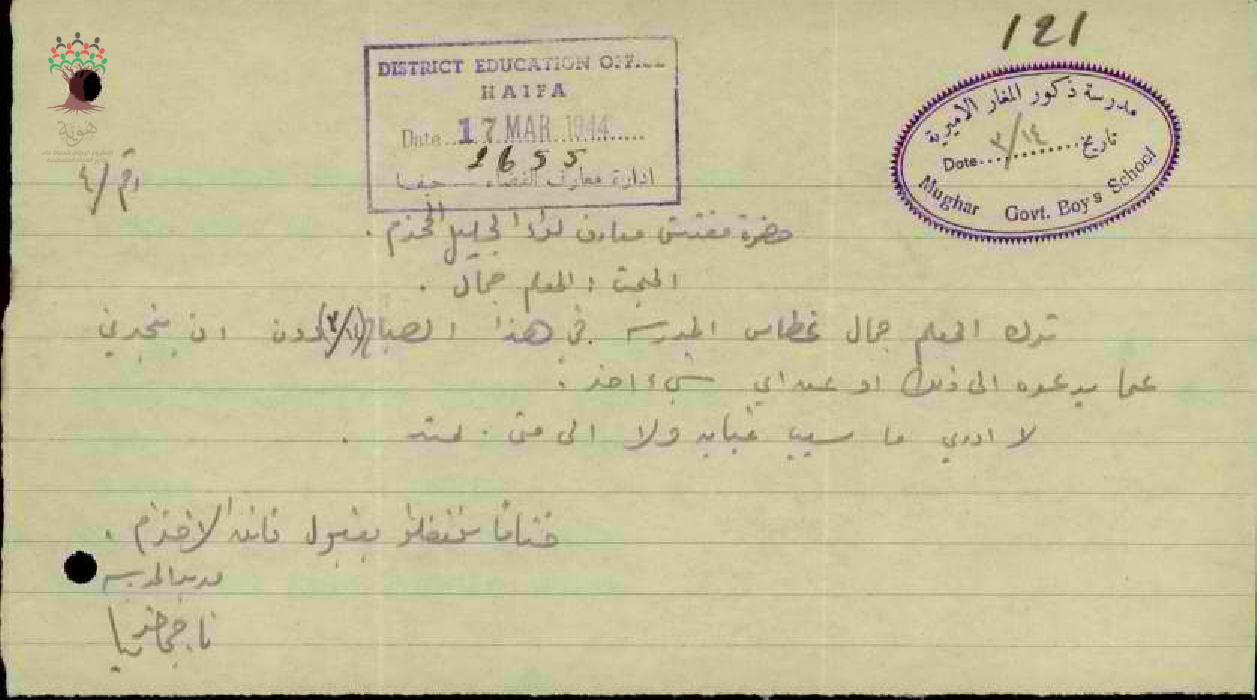 121
DISTRICT EDUCATION OFFICE
HAIFA
Date 17 MAR 1944
1655
ادارة معارف القضاء — حيفا
مدرسة ذكور المغار الاميرية
تاريخ ١٤/٣ Date
Mughar Govt. Boys School
هوية
رقم /٤
حضرة مفتش معارف لواء الجليل المحترم .
المبحث : المعلم جمال .
ترك المعلم جمال غطاس المدرسة في هذا الصباح دون ان يخبرني
عما يدعوه الى ذلك او عن اي شيء اخر .
لا ادري ما سبب غيابه ولا الى متى يمتد .
ختاما تفضلوا بقبول فائق الاحترام .
مدير المدرسة
ناجي